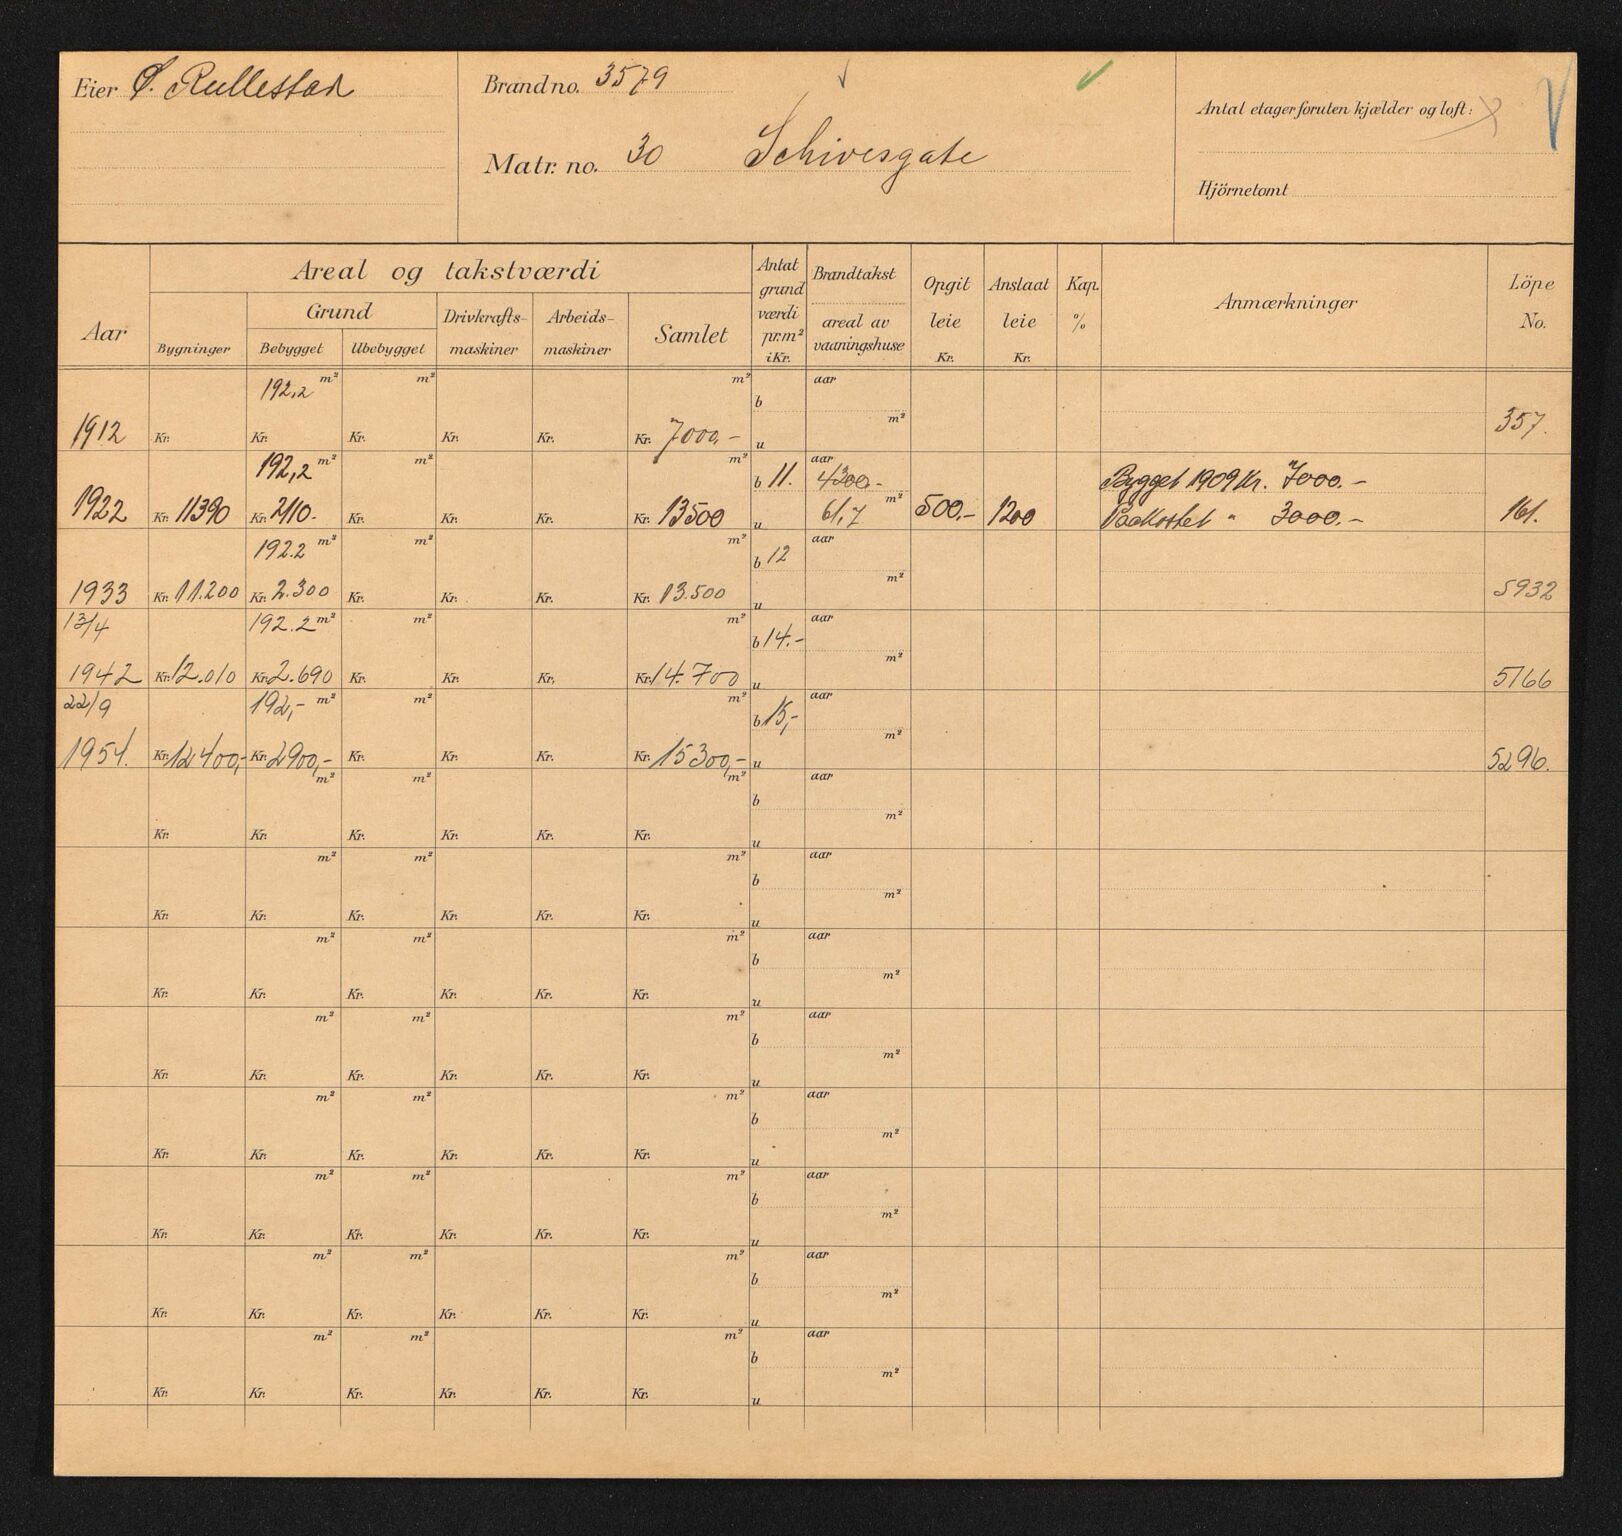 Eier Ø. Rullestad
Brand no. 3579
Matr. no. 30 Schivesgate
Antal etager foruten kjælder og loft:
Hjörnetomt
Aar
Areal og takstværdi
Bygninger
Grund
Bebygget
Ubebygget
Drivkrafts-
maskiner
Arbeids-
maskiner
Samlet
Antat
grund
værdi
pr.m²
i Kr.
Brandtakst
areal av
vaaningshuse
Opgit
leie
Kr.
Anslaat
leie
Kr.
Kap.
%
Anmærkninger
Löpe
No.
192,2 m² m² m² b aar
1912 Kr. Kr. Kr. Kr. Kr. Kr. 7000,- u m² 357.
192,2 m² m² m² b 11. aar 4300.- Bygget 1909 Kr. 7000.-
1922 Kr. 11390 Kr. 2110.- Kr. Kr. Kr. Kr. 13500 u 61,7 m² 500.- 1200 Paakostet " 3000.- 161.
192.2 m² m² m² b 12 aar
1933 Kr. 11.200 Kr. 2.300 Kr. Kr. Kr. Kr. 13.500 u m² 5932
13/4 192.2 m² m² m² b 14.- aar
1942 Kr. 12.010 Kr. 2.690 Kr. Kr. Kr. Kr. 14.700 u m² 5166
22/9 192,- m² m² m² b 15,- aar
1954. Kr. 12400,- Kr. 2900,- Kr. Kr. Kr. Kr. 15300,- u m² 5296.
m² m² m² b aar
Kr. Kr. Kr. Kr. Kr. Kr. u m²
m² m² m² b aar
Kr. Kr. Kr. Kr. Kr. Kr. u m²
m² m² m² b aar
Kr. Kr. Kr. Kr. Kr. Kr. u m²
m² m² m² b aar
Kr. Kr. Kr. Kr. Kr. Kr. u m²
m² m² m² b aar
Kr. Kr. Kr. Kr. Kr. Kr. u m²
m² m² m² b aar
Kr. Kr. Kr. Kr. Kr. Kr. u m²
m² m² m² b aar
Kr. Kr. Kr. Kr. Kr. Kr. u m²
m² m² m² b aar
Kr. Kr. Kr. Kr. Kr. Kr. u m²